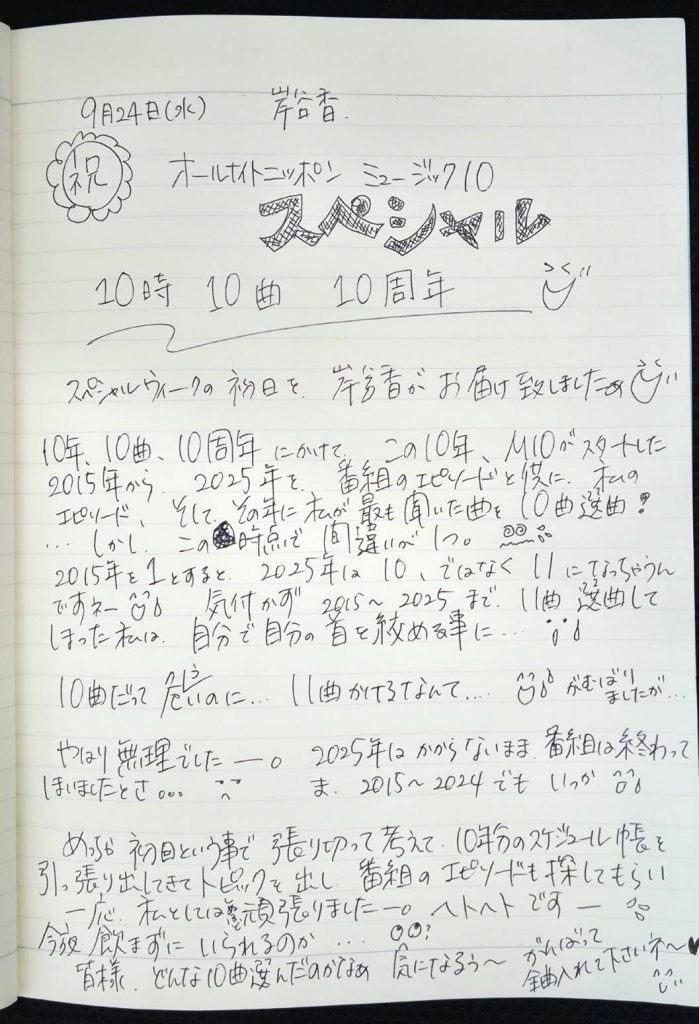 9月24日(水) 岸谷香.
祝
オールナイトニッポン ミュージック10
スペシャル
10時 10曲 10周年
スペシャルウィークの初日を、岸谷香がお届け致しましたぁ
10年、10曲、10周年 にかけて、この10年、M10がスタートした
2015年から、2025年を、番組のエピソードと供に、私の
エピソード、そして、その年に私が最も聞いた曲を10曲選曲!
… しかし、この時点で間違いが1つ。
2015年を1とすると、2025年は10、ではなく11になっちゃうん
ですネー 気付かず 2015〜2025まで、11曲選曲して
しまった私は、自分で自分の首を絞める事に…
10曲だって危いのに… 11曲かけるなんて…. がむばり
ましたが…
やはり無理でしたー。2025年はかからないまま、番組は終わって
しまいましたとさ… ま、2015〜2024でもいっか
めっちゃ初日という事で張り切って考えて、10年分のスケジュール帳を
引っ張り出してきてトピックを出し、番組のエピソードも探してもらい
一応、私としては頑張りましたー。ヘトヘトですー
今夜飲まずにいられるのか….
皆様、どんな10曲選んだのかなぁ 気になるぅ〜
がんばって
全曲入れて下さいネ〜♥